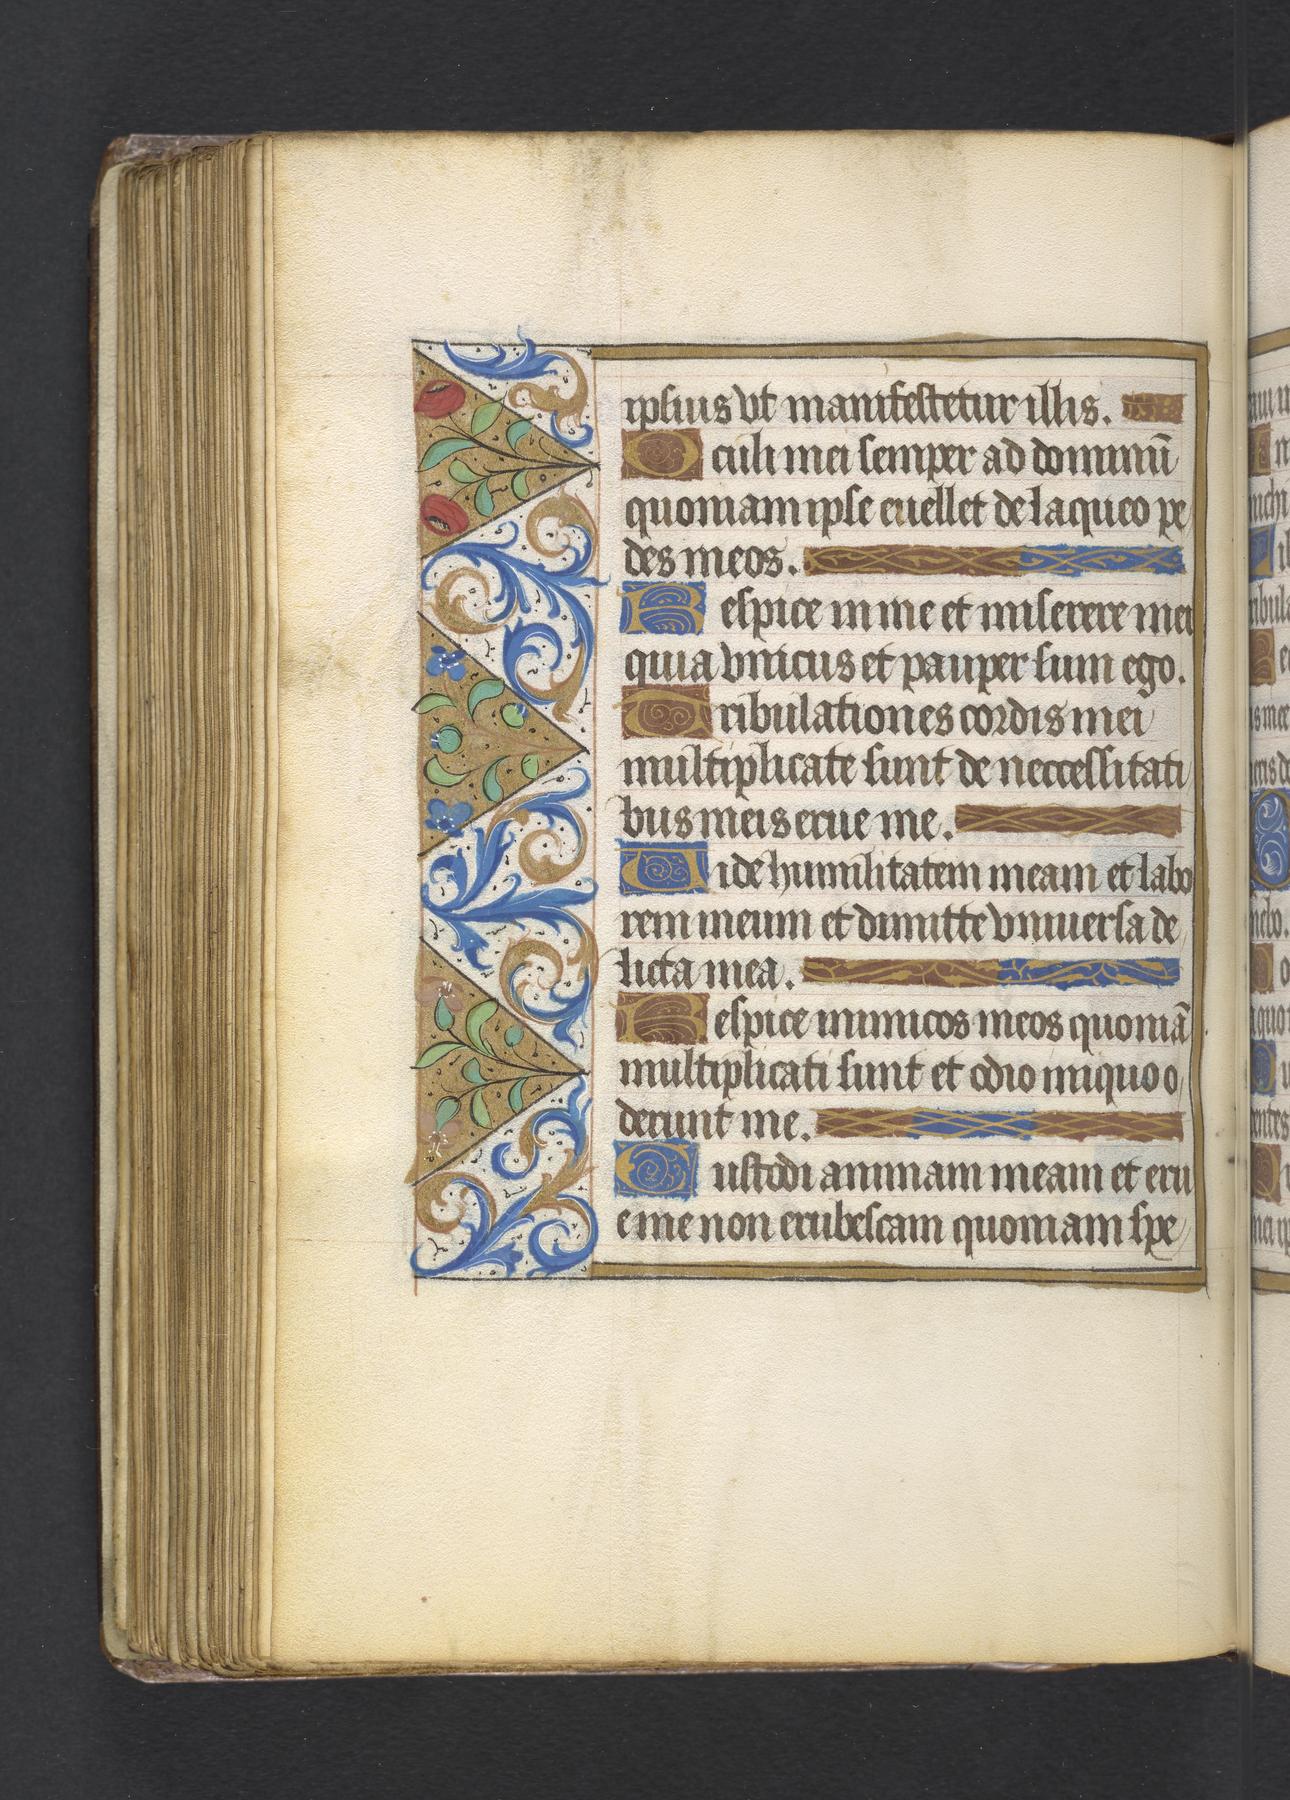 ipsius vt manifestetur illis.
Oculi mei semper ad dominũ
quoniam ipse euellet de laqueo pe
des meos.
Respice in me et miserere mei
quia vnicus et pauper sum ego.
Tribulationes cordis mei
multiplicate sunt de neccessitati
bus meis erue me.
Uide humilitatem meam et labo
rem meum et dimitte vniuersa de
licta mea.
Respice inimicos meos quoniã
multiplicati sunt et odio iniquo o
derunt me.
Custodi animam meam et eru
e me non erubescam quoniam spe